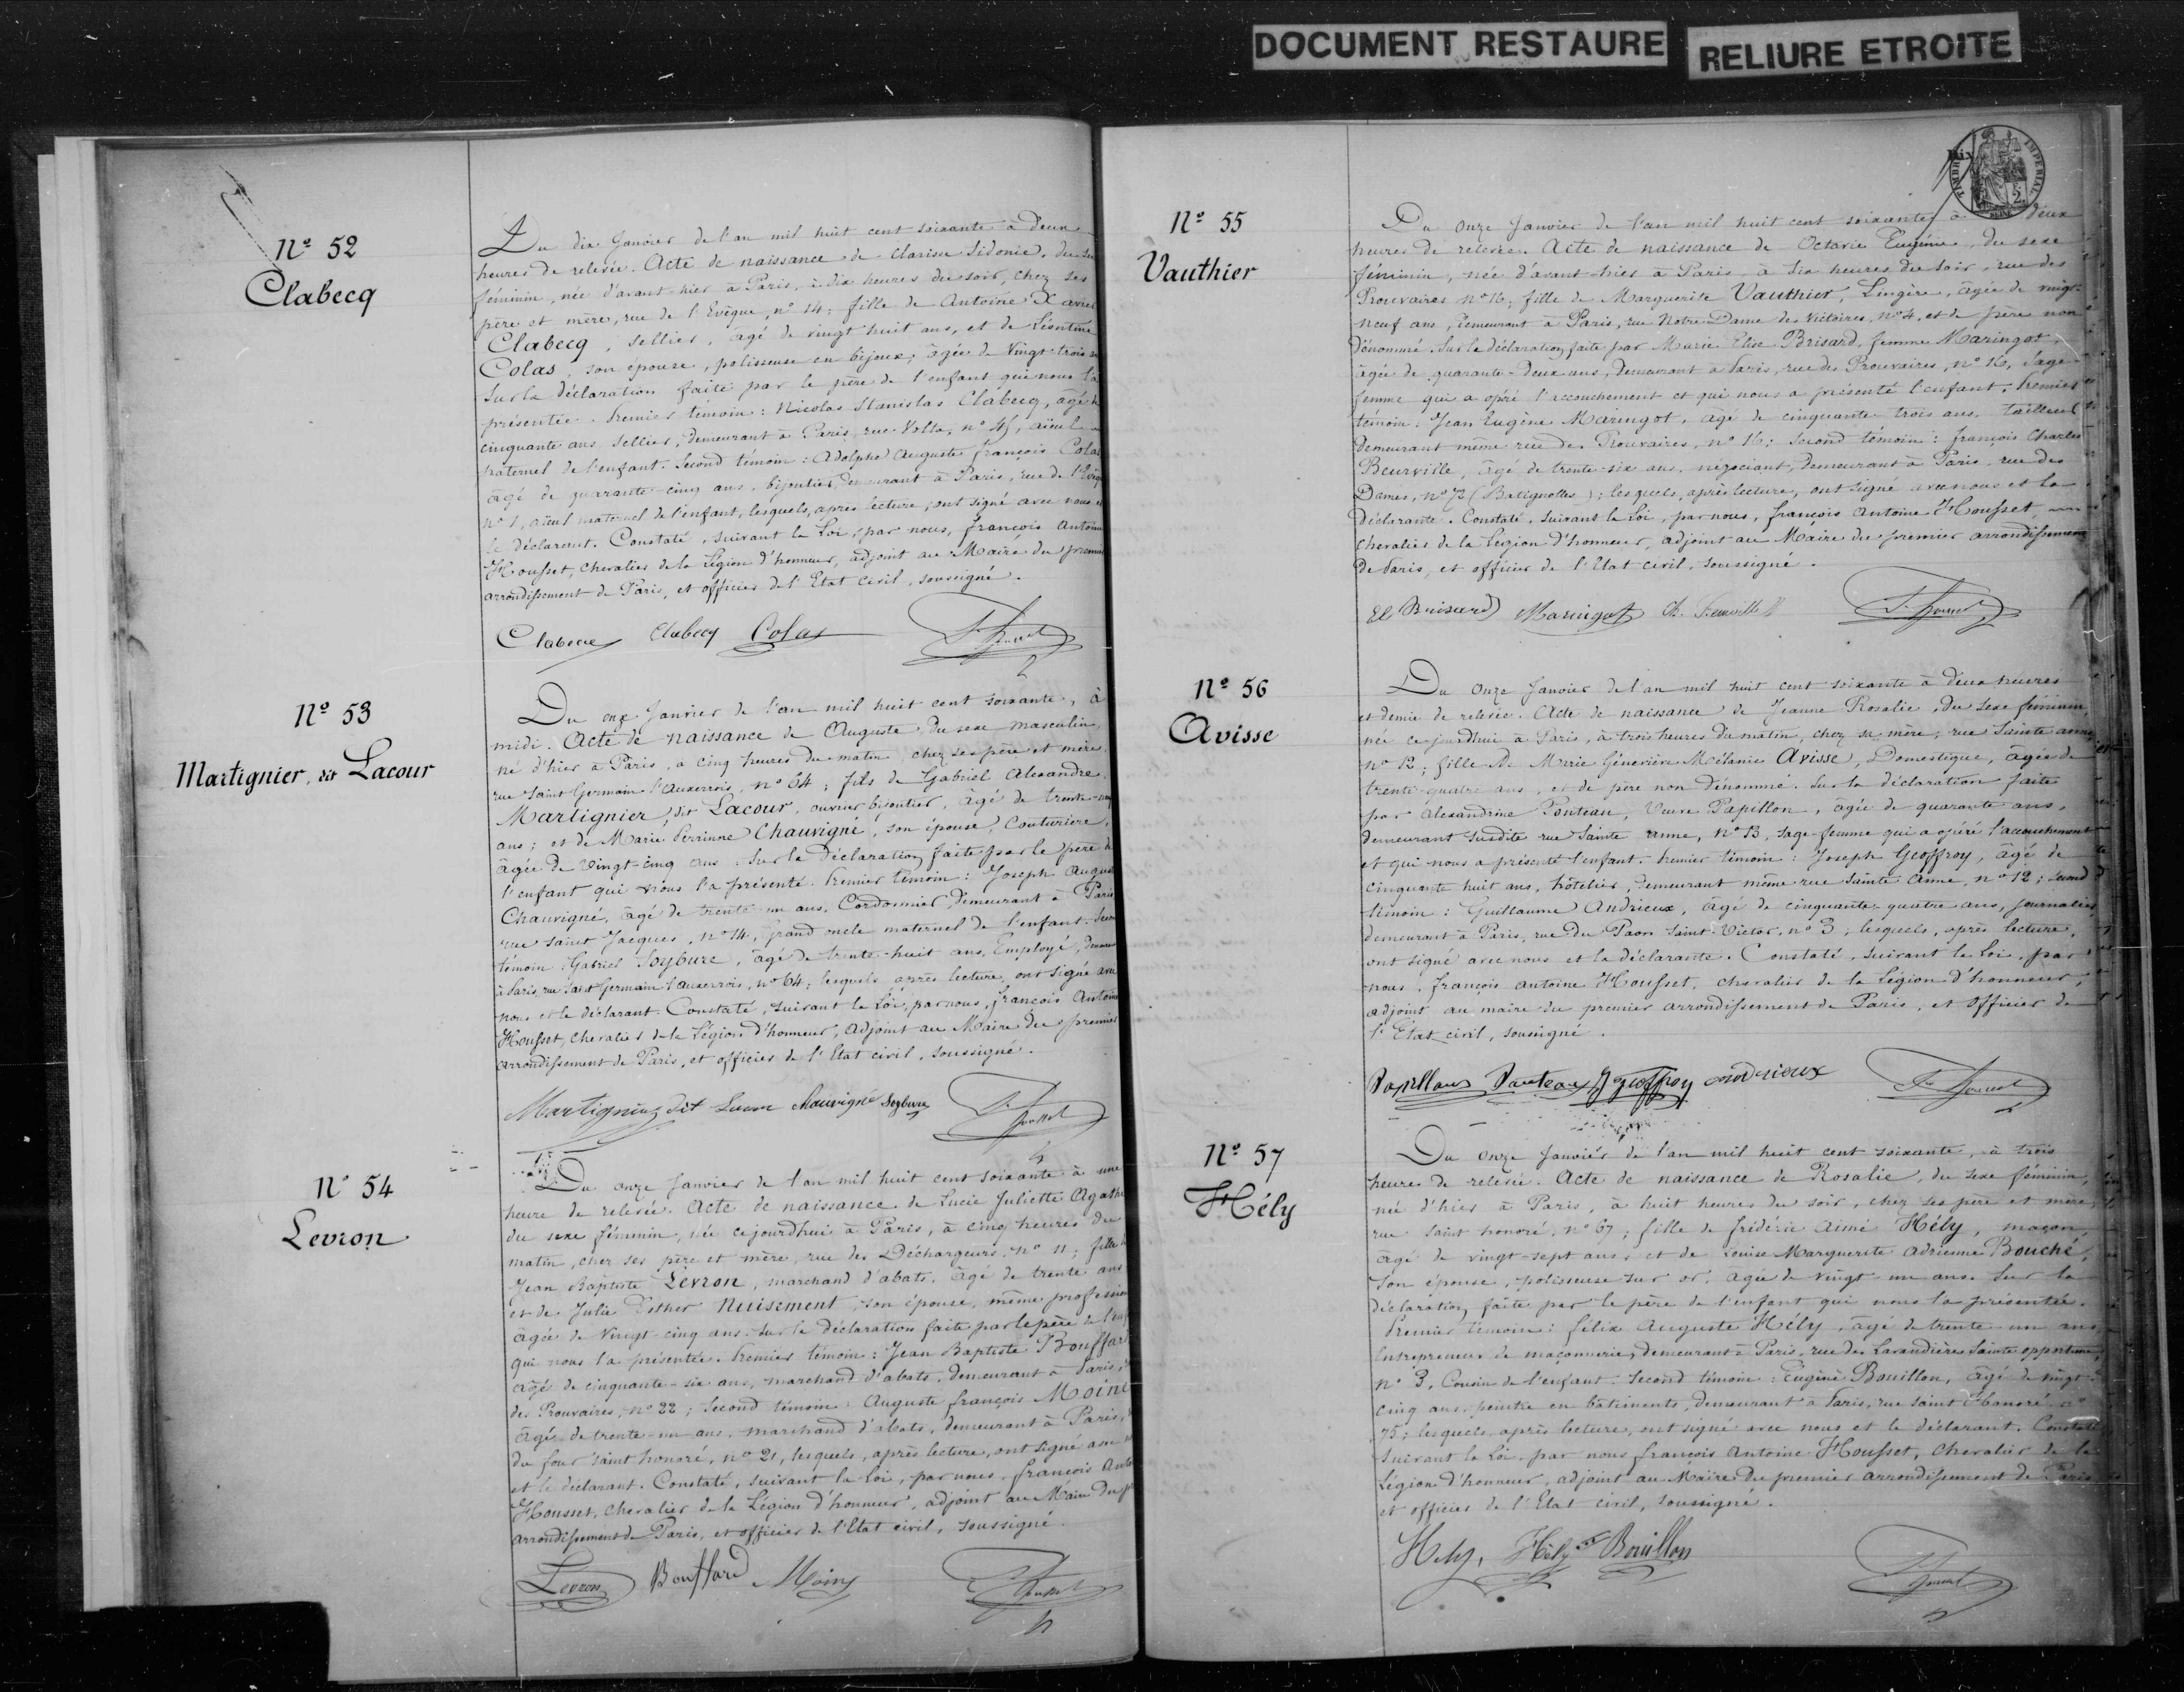 DOCUMENT RESTAURE
RELIURE ETROITE
Nº 52
Clabecq
Du dix Janvier de l'an mil huit cent soixante à deux
heures de relevée. Acte de naissance de Clarisse Sidonie, du
féminin, née d'avant-hier à Paris, à dix heures du soir, chez ses
père et mère, rue de l'Evêque, nº 14; fille de Antoine Xavier
Clabecq, sellier, âgé de vingt huit ans, et de Léontine
Colas, son épouse, polisseuse en bijoux, âgée de vingt-trois
Sur la déclaration faite par le père de l'enfant qui nous l'a
présentée. Premier témoin: Nicolas Stanislas Clabecq, âgé de
cinquante ans, sellier, demeurant à Paris, rue Volta, nº 45, aïeul
paternel de l'enfant. Second témoin: Adolphe Auguste François Colas
âgé de quarante-cinq ans, bijoutier, demeurant à Paris, rue de l'Evêque
nº 1, aïeul maternel de l'enfant, lesquels, après lecture, ont signé avec nous et
le déclarant. Constaté, suivant la Loi, par nous, François Antoine
Housset, Chevalier de la Légion d'honneur, adjoint au Maire du premier
arrondissement de Paris, et officier de l'Etat civil, soussigné.
Clabecq Clabecq Colas F. Housset
Nº 53
Martignier, dit Lacour
Du onze Janvier de l'an mil huit cent soixante, à
midi. Acte de naissance de Auguste, du sexe masculin,
né d'hier à Paris, à cinq heures du matin, chez ses père et mère,
rue Saint Germain l'Auxerrois, nº 64; fils de Gabriel Alexandre
Martignier, dit Lacour, ouvrier bijoutier, âgé de trente-
ans; et de Marie Perrinne Chauvigné, son épouse, Couturière,
âgée de vingt-cinq ans. Sur la Déclaration faite par le père de
l'enfant qui nous l'a présenté. Premier témoin: Joseph Auguste
Chauvigné, âgé de trente-un ans, Cordonnier, demeurant à Paris
rue Saint Jacques, nº 14, grand oncle maternel de l'enfant. Second
témoin: Gabriel Soybure, âgé de trente-huit ans, Employé, demeurant
à Paris, rue Saint Germain l'Auxerrois, nº 64; lesquels après lecture, ont signé avec
nous et le déclarant. Constaté, suivant la Loi, par nous, François Antoine
Housset, Chevalier de la Légion d'honneur, Adjoint au Maire du premier
arrondissement de Paris, et officier de l'Etat civil, soussigné.
Martignier dit Lacour Chauvigné Soybure F. Housset
Nº 54
Levron
Du onze Janvier de l'an mil huit cent soixante à une
heure de relevée. Acte de naissance de Lucie Juliette Agathe
du sexe féminin, née cejourdhui à Paris, à cinq heures du
matin, chez ses père et mère, rue des Déchargeurs, nº 11; fille de
Jean Baptiste Levron, marchand d'abats, âgé de trente ans
et de Julie Esther Nuisement, son épouse, même profession
âgée de vingt-cinq ans. Sur la déclaration faite par le père de l'enf
qui nous l'a présentée. Premier témoin: Jean Baptiste Bouffard
âgé de cinquante-six ans, marchand d'abats, demeurant à Paris,
des Prouvaires, nº 22; Second témoin: Auguste François Moine
âgé de trente-un ans, marchand d'abats, demeurant à Paris,
du four saint honoré, nº 21, lesquels, après lecture, ont signé avec
et le déclarant. Constaté, suivant la Loi, par nous, François Anto
Housset, Chevalier de la Légion d'honneur, adjoint au Maire du p
arrondissement de Paris, et officier de l'Etat civil, soussigné.
Levron Bouffard Moine F. Housset
TIMBRE IMPERIAL
Dix
2.
SEINE
Nº 55
Vauthier
Du onze Janvier de l'an mil huit cent soixante, à deux
heures de relevée. Acte de naissance de Octavie Eugénie, du sexe
féminin, née d'avant-hier à Paris, à six heures du soir, rue des
Prouvaires nº 16; fille de Marguerite Vauthier, Lingère, âgée de vingt-
neuf ans, demeurant à Paris, rue Notre-Dame des Victoires, nº 4, et de père non
dénommé. Sur la déclaration faite par Marie Elise Brisard, femme Maringot,
âgée de quarante-deux ans, demeurant à Paris, rue des Prouvaires, nº 16, Sage-
femme qui a opéré l'accouchement et qui nous a présenté l'enfant. Premier
témoin: Jean Eugène Maringot, âgé de cinquante-trois ans, tailleur
demeurant même rue des Prouvaires, nº 16; Second témoin: François Charles
Beurville, âgé de trente-six ans, négociant, demeurant à Paris, rue des
Dames, nº 72 (Batignolles); lesquels, après lecture, ont signé avec nous et la
déclarante. Constaté, suivant la Loi, par nous, François Antoine Housset,
Chevalier de la Légion d'honneur, adjoint au Maire du premier arrondissement
de Paris, et officier de l'Etat civil, soussigné.
El Brisard Maringot Ch. Beurville F. Housset
Nº 56
Avisse
Du onze Janvier de l'an mil huit cent soixante à deux heures
et demie de relevée. Acte de naissance de Jeanne Rosalie, du sexe féminin,
née cejourdhui à Paris, à trois heures du matin, chez sa mère, rue Sainte anne
nº 12; fille de Marie Géneviève Mélanie Avisse, Domestique, âgée de
trente-quatre ans, et de père non dénommé. Sur la déclaration faite
par Alexandrine Ponteau, Veuve Papillon, âgée de quarante ans,
demeurant susdite rue Sainte anne, nº 13, sage-femme qui a opéré l'accouchement
et qui nous a présenté l'enfant. Premier témoin: Joseph Geoffroy, âgé de
cinquante huit ans, hôtelier, demeurant même rue Sainte Anne, nº 12; Second
témoin: Guillaume Andrieux, âgé de cinquante-quatre ans, journalier,
demeurant à Paris, rue du Paon Saint-Victor, nº 3, lesquels, après lecture,
ont signé avec nous et la déclarante. Constaté, suivant la Loi, par
nous, François Antoine Housset, chevalier de la Légion d'honneur,
adjoint au maire du premier arrondissement de Paris, et officier de
l'Etat civil, soussigné.
Papillon Ponteau J Geoffroy andrieux F. Housset
Nº 57
Hély
Du onze Janvier de l'an mil huit cent soixante, à trois
heures de relevée. Acte de naissance de Rosalie, du sexe féminin,
née d'hier à Paris, à huit heures du soir, chez ses père et mère,
rue Saint honoré, nº 67; fille de Frédéric Aimé Hély, maçon,
âgé de vingt-sept ans, et de Louise Marguerite Adrienne Bouché,
son épouse, polisseuse sur or, âgée de vingt-un ans. Sur la
déclaration faite par le père de l'enfant qui nous l'a présentée.
Premier témoin: Félix Auguste Hély, âgé de trente-un ans
Entrepreneur de maçonnerie, demeurant à Paris, rue des Lavandières Sainte opportune,
nº 3, Cousin de l'enfant. Second témoin: Eugène Bouillon, âgé de vingt-
cinq ans, peintre en bâtiments, demeurant à Paris, rue saint Honoré, nº
75; lesquels, après lecture, ont signé avec nous et le déclarant. Constaté
suivant la Loi, par nous François Antoine Housset, Chevalier de la
Légion d'honneur, adjoint au Maire du premier arrondissement de Paris
et officier de l'Etat civil, soussigné.
Hely, Hély Bouillon F. Housset